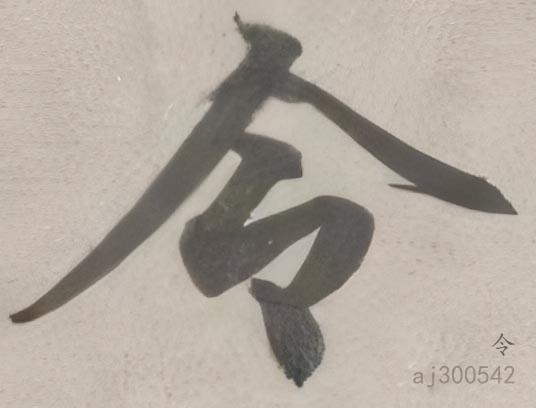 令
令
aj300542